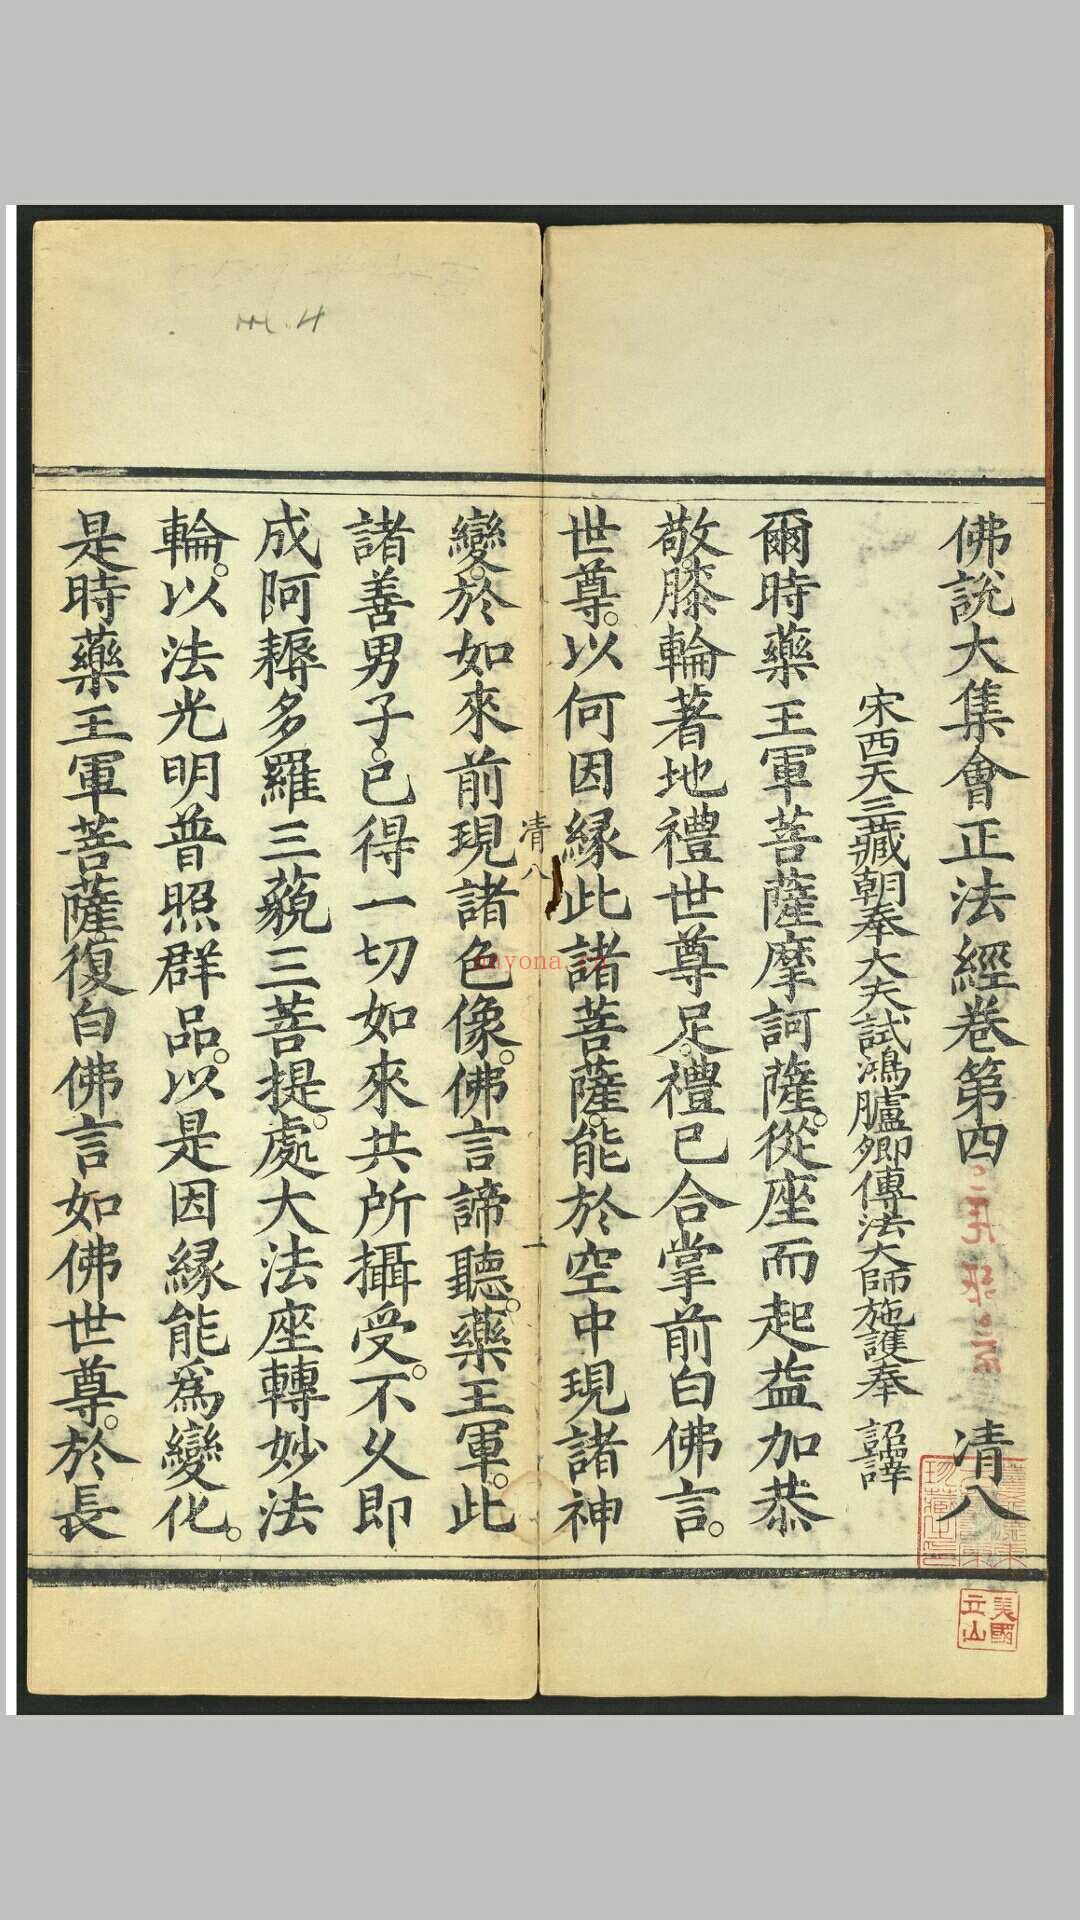 佛說大集會正法經卷第四 清八
宋西天三藏朝奉大夫試鴻臚卿傳法大師施護奉 詔譯
爾時藥王軍菩薩摩訶薩。從座而起益加恭
敬。膝輪著地禮世尊足。禮已合掌前白佛言。
世尊。以何因緣此諸菩薩。能於空中現諸神
清八 一
變。於如來前現諸色像。佛言諦聽。藥王軍。此
諸善男子。已得一切如來共所攝受。不久即
成阿耨多羅三藐三菩提。處大法座轉妙法
輪。以法光明普照群品。以是因緣能為變化。
是時藥王軍菩薩復白佛言如佛世尊。於長
美國
立山